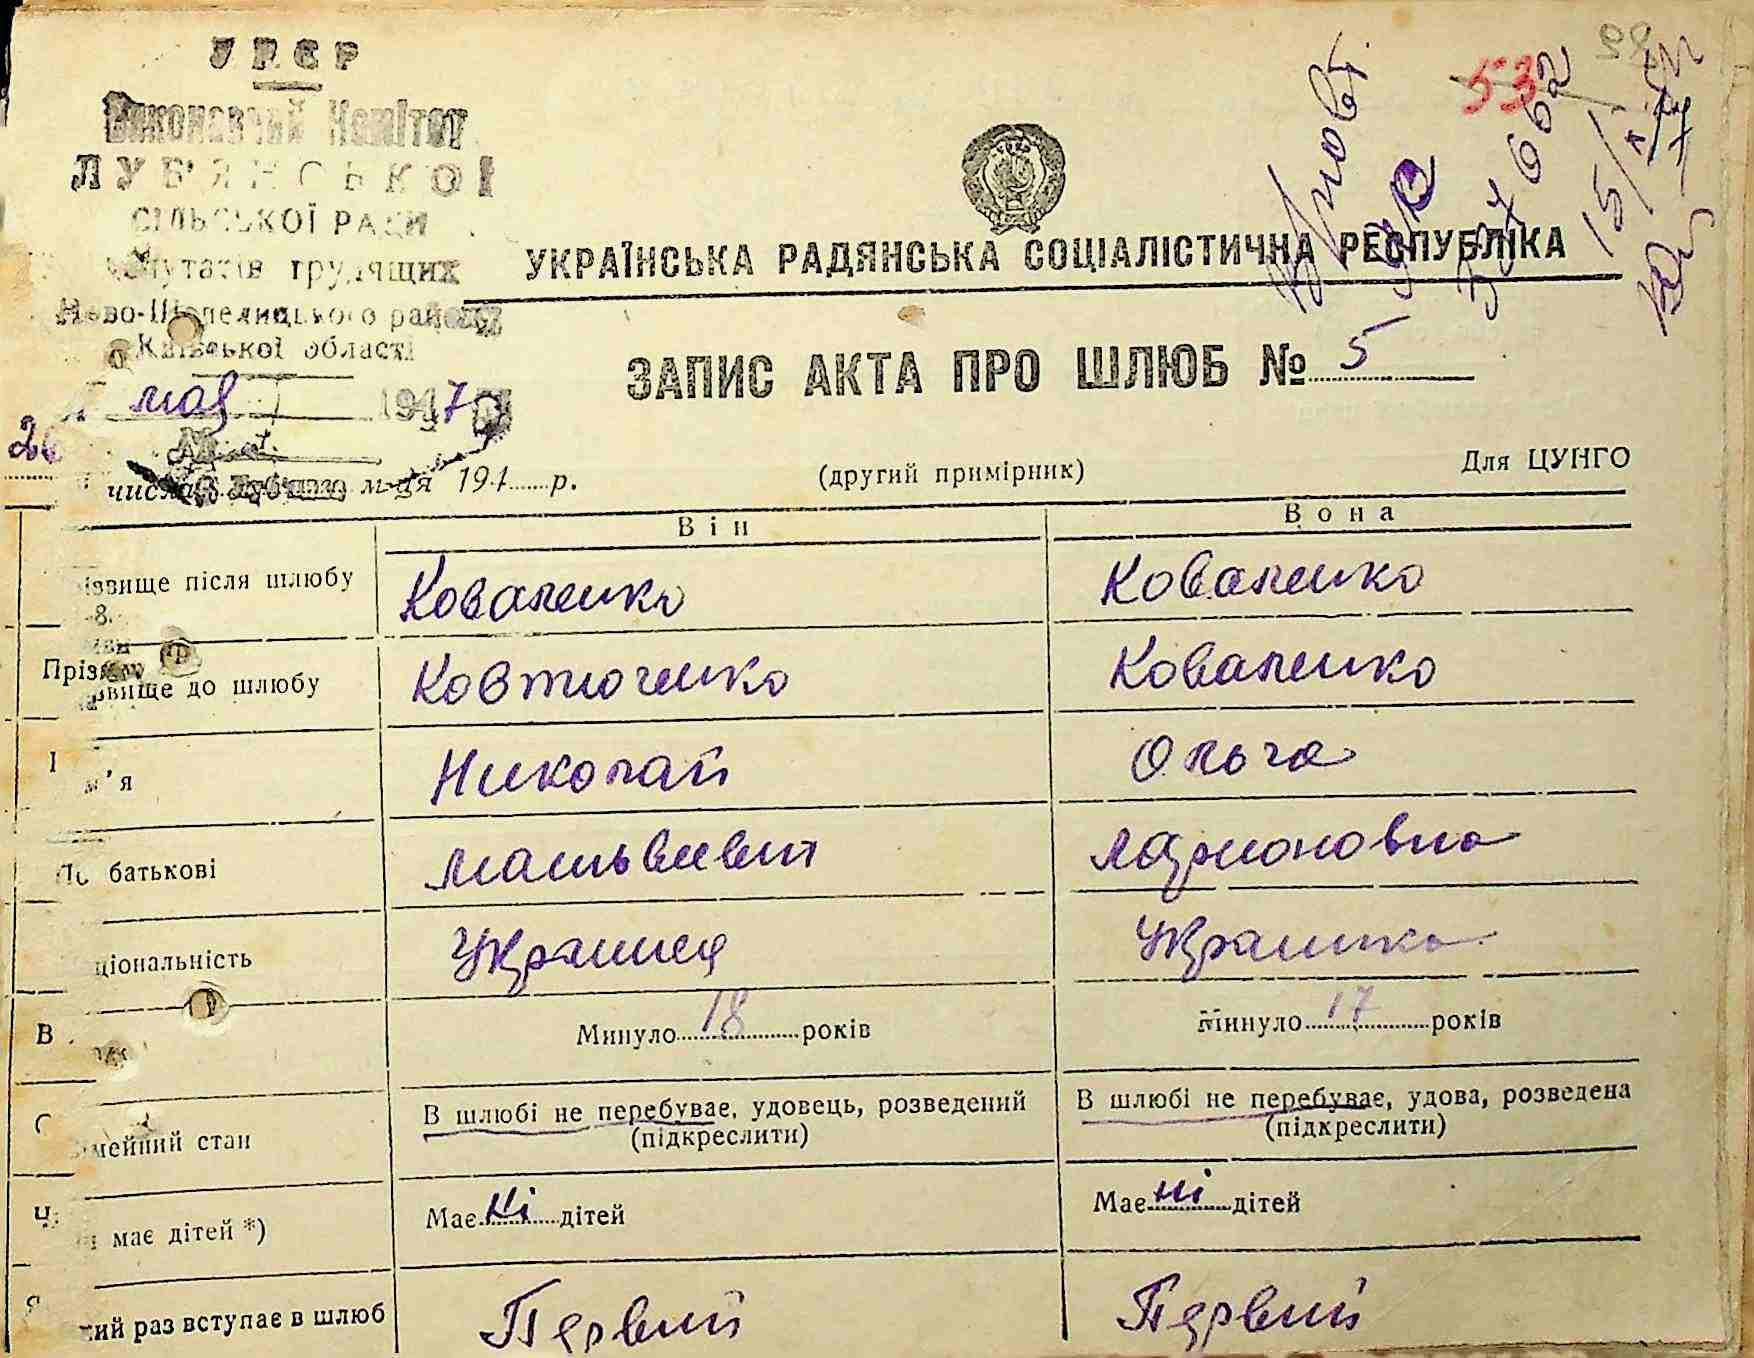 УРСР
Виконавчий Комітет
ЛУБ'ЯНСЬКОЇ
СІЛЬСЬКОЇ РАДИ
депутатів трудящих
Ново-Шепелицького району
Київської області
мая 1947
26
числа м-ця 194 р.
53
УКРАЇНСЬКА РАДЯНСЬКА СОЦІАЛІСТИЧНА РЕСПУБЛІКА
ЗАПИС АКТА ПРО ШЛЮБ № 5
(другий примірник)
Для ЦУНГО
Він Вона
ізвище після шлюбу Коваленко Коваленко
Прізв
звище до шлюбу Ковтюченко Коваленко
І м'я Николай Ольга
По батькові Матьвиевич Ларионовна
ціональність Украинец Украинка
В Минуло 18 років Минуло 17 років
С імейний стан В шлюбі не перебуває, удовець, розведений В шлюбі не перебуває, удова, розведена
(підкреслити) (підкреслити)
Ч и має дітей *) Має ні дітей Має ні дітей
Я кий раз вступає в шлюб Первий Первий